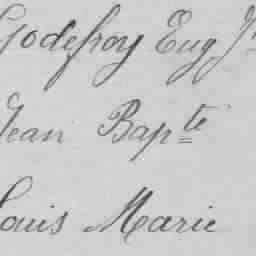 Godefroy Eug J
Jean Bapte
Louis Marie